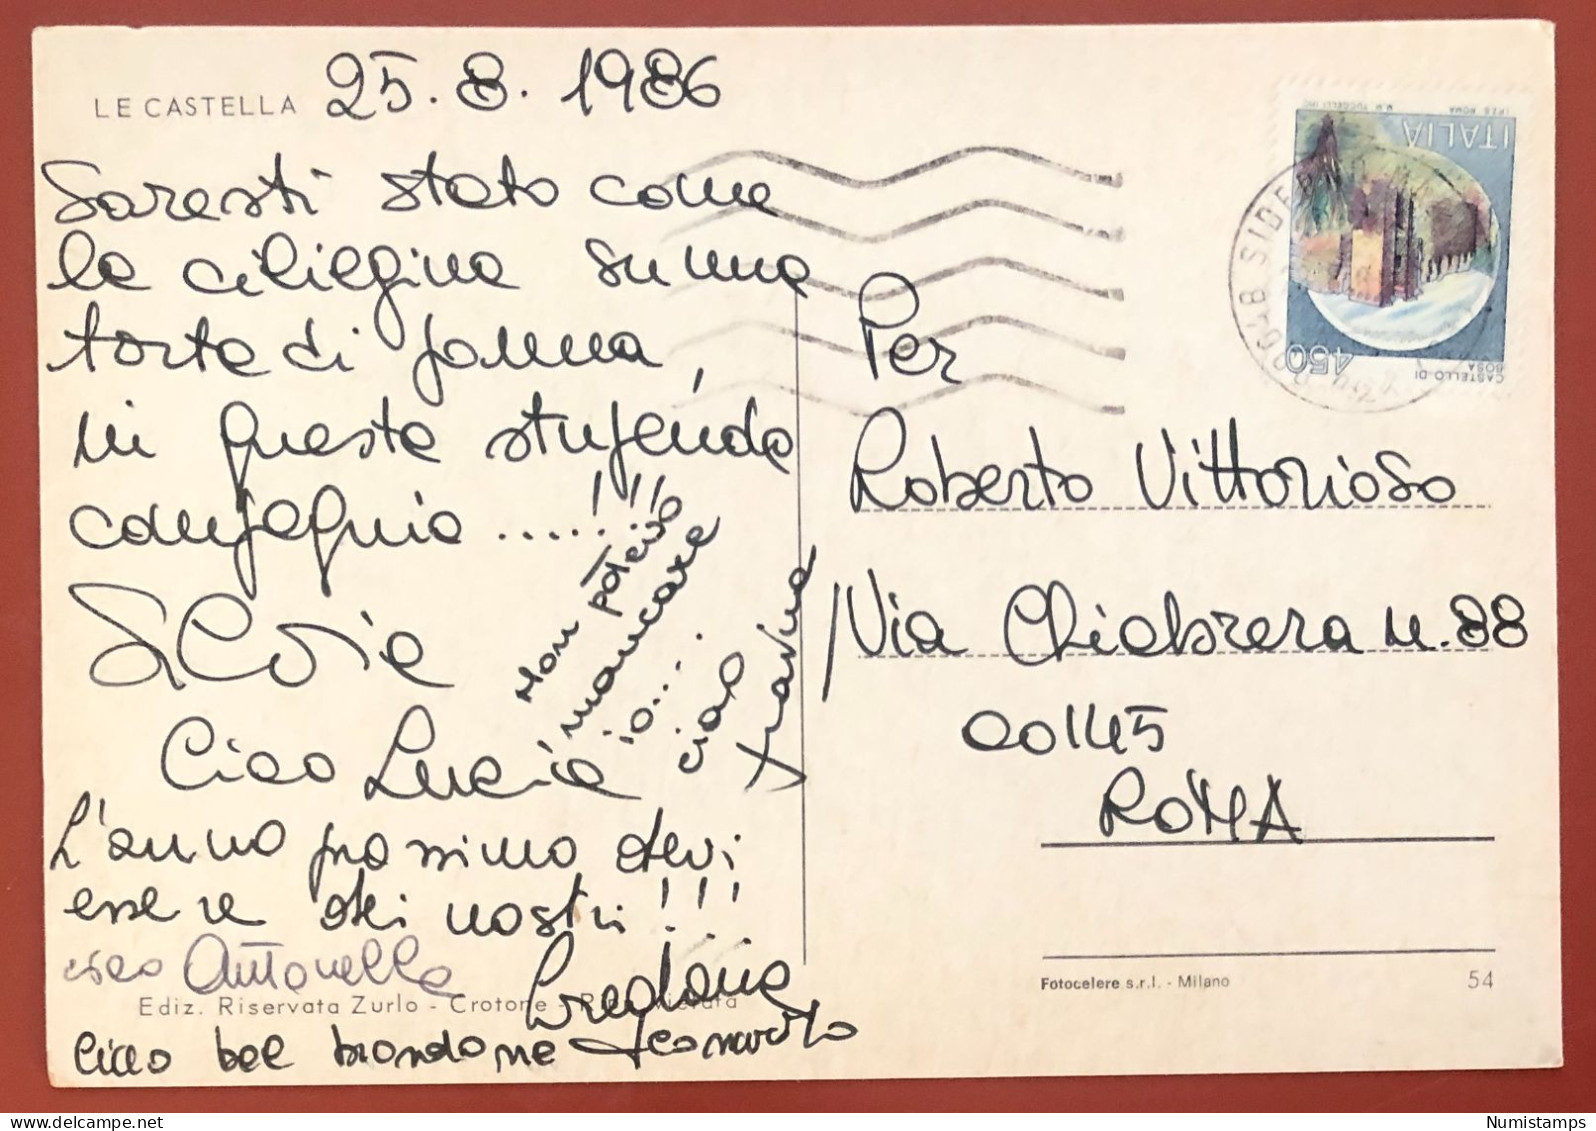 LE CASTELLA 25.8.1986
Saresti stato come
la ciliegina su una
torta di panna,
in questa stupenda
compagnia .....!!!
Silvia
Non potevo
mancare
io...
ciao
Marina
Ciao Lucia
L'anno prossimo devi
essere dei nostri!!!
ciao Antonella
Loredana
Ediz. Riservata Zurlo - Crotone - Ripr. Vietata
Ciao bel biondone Leonardo
ITALIA
I.P.Z.S. ROMA
CASTELLO DI
BOSA
450
SIDERNO
Per
Roberto Vittorioso
Via Chiabrera n. 88
00145
ROMA
Fotocelere s.r.l. - Milano
54
Numistamps